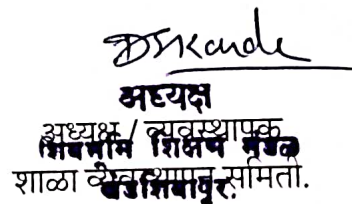 अध्यक्ष
अध्यक्ष / व्यवस्थापक
शिवभीम शिक्षण मंडळ
शाळा व्यवस्थापन समिती.
खेडशिवापूर.